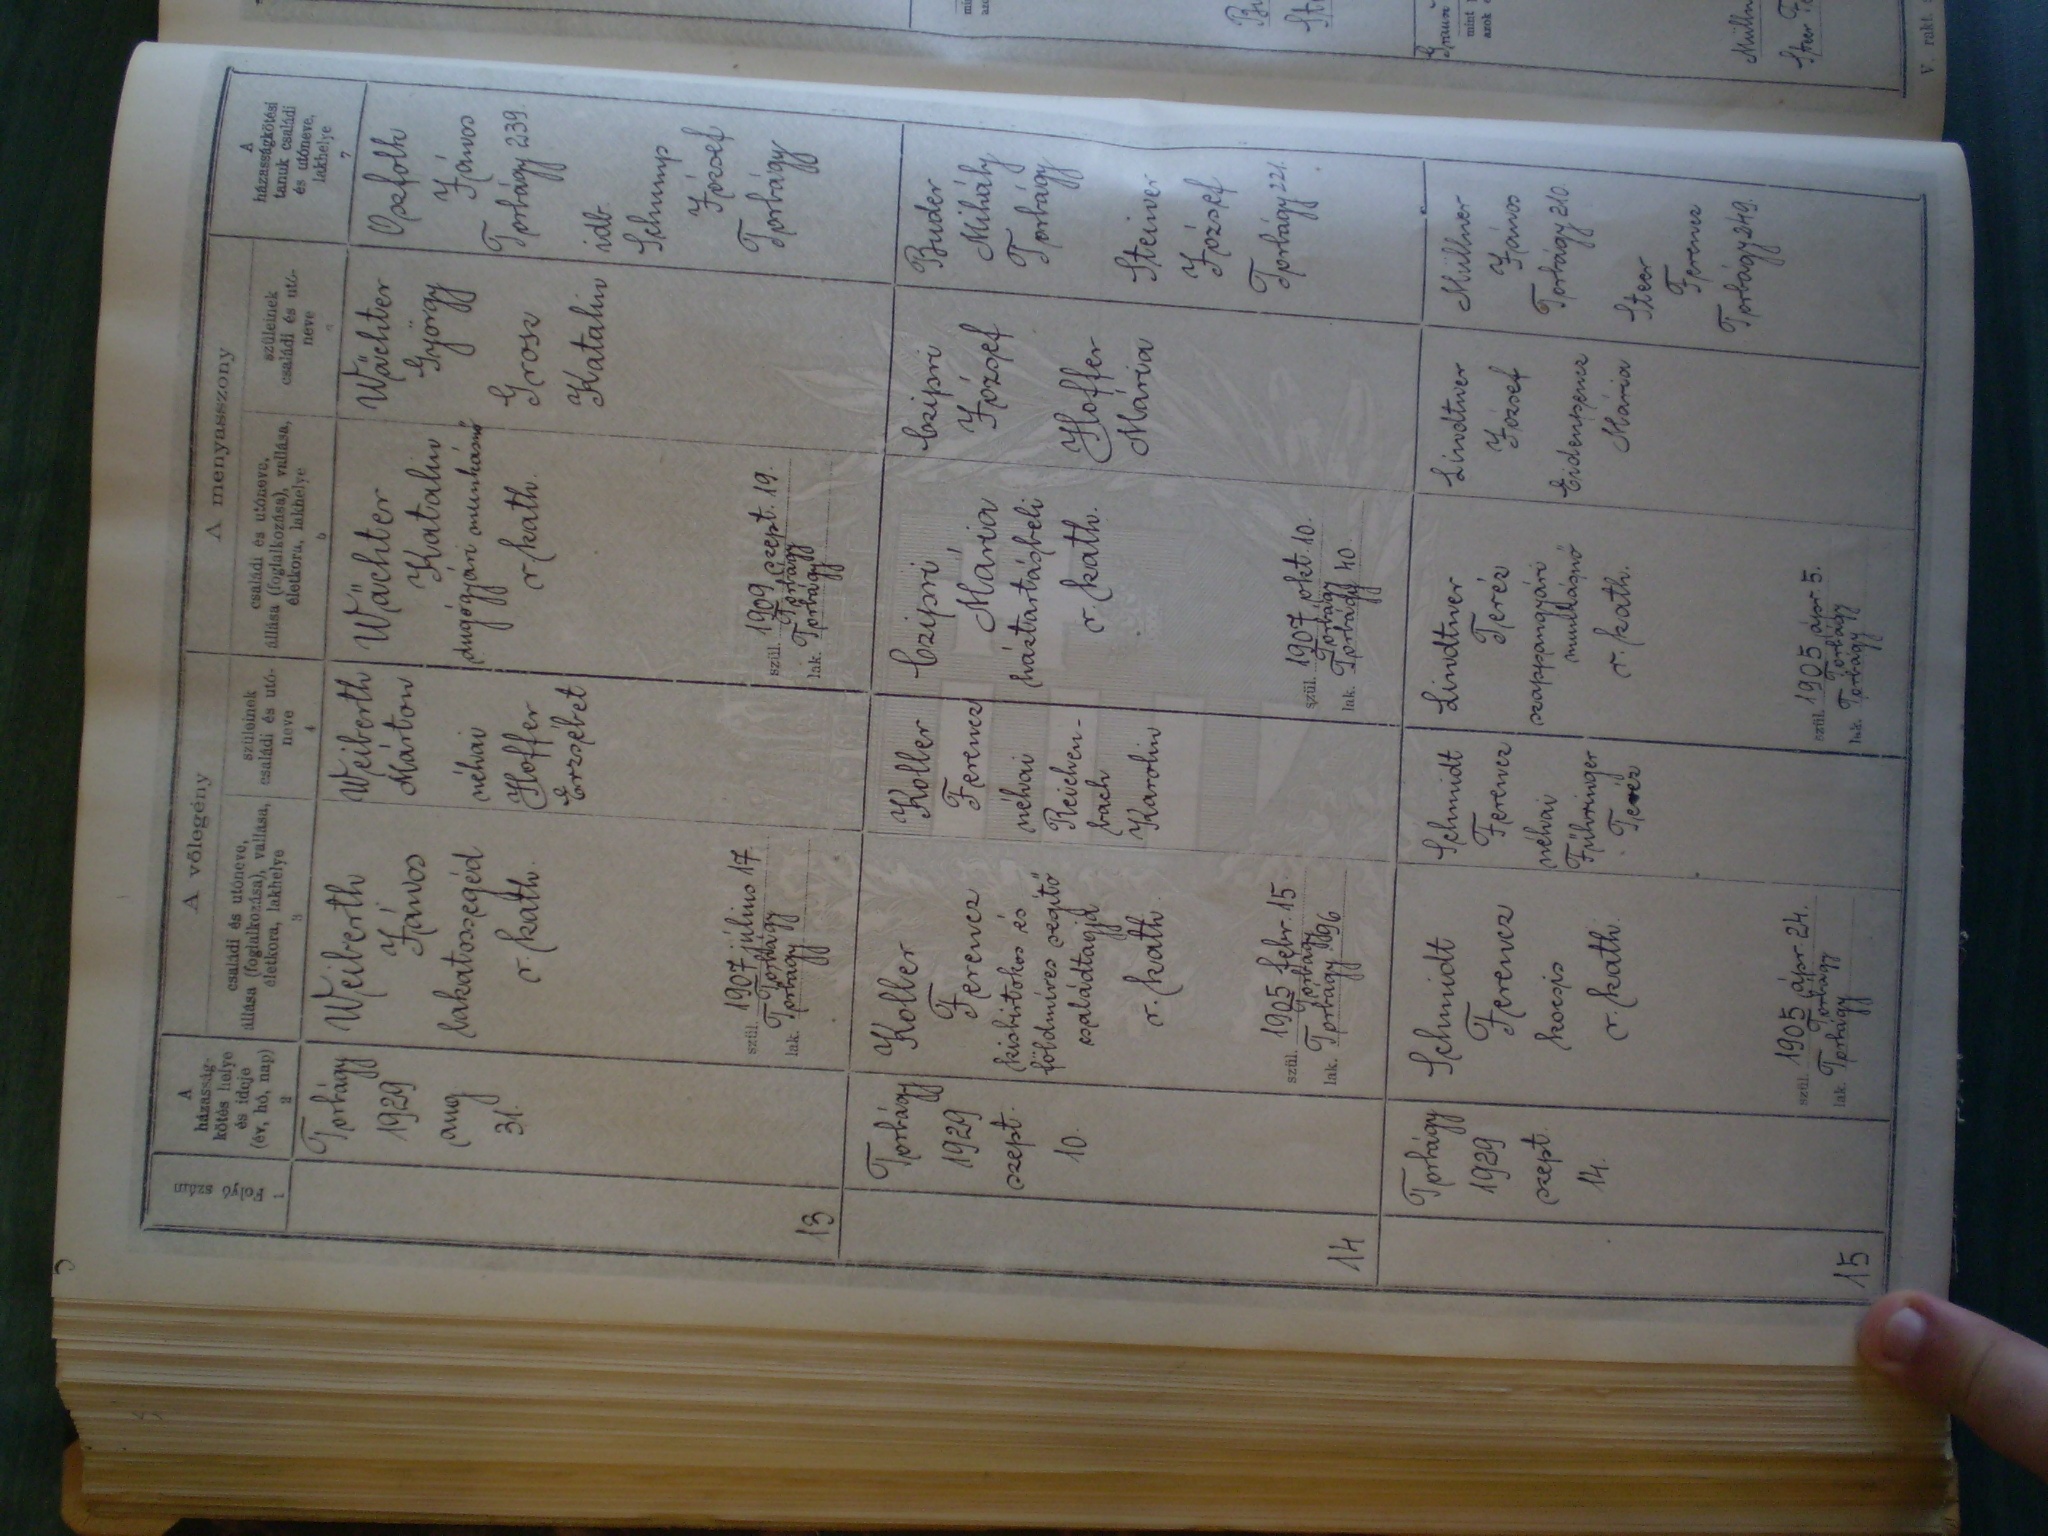 A vőlegény
A menyasszony
1
A
házasság-
kötés helye
és ideje
(év, hó, nap)
2
családi és utóneve,
állása (foglalkozása), vallása,
életkora, lakhelye
3
szüleinek
családi és utó-
neve
4
családi és utóneve,
állása (foglalkozása), vallása,
életkora, lakhelye
5
szüleinek
családi és utó-
neve
A
házasságkötési
tanuk családi
és utóneve,
lakhelye
7
13
Torbágy
1929
aug
31.
Weiberth
János
lakatossegéd
r. kath.
szül. 1907 július 17.
Torbágy
lak. Torbágy
Weiberth
Márton
néhai
Hoffer
Erzsébet
Wächter
Katalin
dugógyári munkásnő
r. kath.
szül. 1909 szept. 19.
Torbágy
lak. Torbágy
Wächter
György
Grosz
Katalin
János
Torbágy 239.
idb.
Schnup
József
Torbágy
14
Torbágy
1929
szept.
10.
Koller
Ferencz
kisbirtokos és
földmíves segítő
családtagja
r. kath.
szül. 1905 febr. 15.
Torbágy
lak. Torbágy 196
Koller
Ferencz
néhai
Reichen-
bach
Karolin
Czipri
Mária
háztartásbeli
r. kath.
szül. 1907 okt. 10.
Torbágy
lak. Torbágy 40.
Czipri
József
Hoffer
Mária
Buder
Mihály
Torbágy
Steiner
József
Torbágy 221.
15
Torbágy
1929
szept.
14.
Schmidt
Ferencz
kocsis
r. kath.
szül. 1905 ápr. 24.
Torbágy
lak. Torbágy
Schmidt
Ferencz
néhai
Führinger
Teréz
Lindtner
Teréz
szappangyári
munkásnő
r. kath.
szül. 1905 ápr. 5.
Torbágy
lak. Torbágy
Lindtner
József
Eidenpencz
Mária
Müllner
János
Torbágy 210.
Steer
Ferencz
Torbágy 249.
V. rakt.